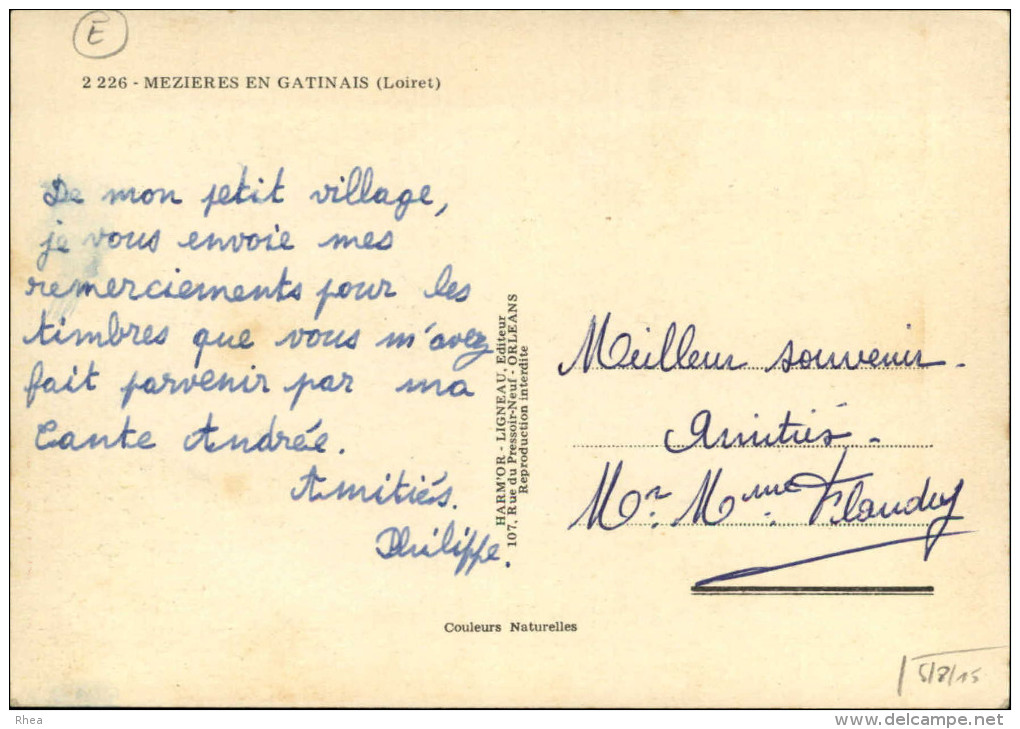 E
2 226 - MEZIERES EN GATINAIS (Loiret)
De mon petit village,
je vous envoie mes
remerciements pour les
timbres que vous m'avez
fait parvenir par ma
Tante Andrée.
Amitiés.
Philippe.
HARM'OR - LIGNEAU, Editeur
107, Rue du Pressoir-Neuf - ORLEANS
Reproduction interdite
Meilleur souvenir.
Amitiés.
Mr. Mme. Flandry
Couleurs Naturelles
5/8/15
Rhea
www.delcampe.net